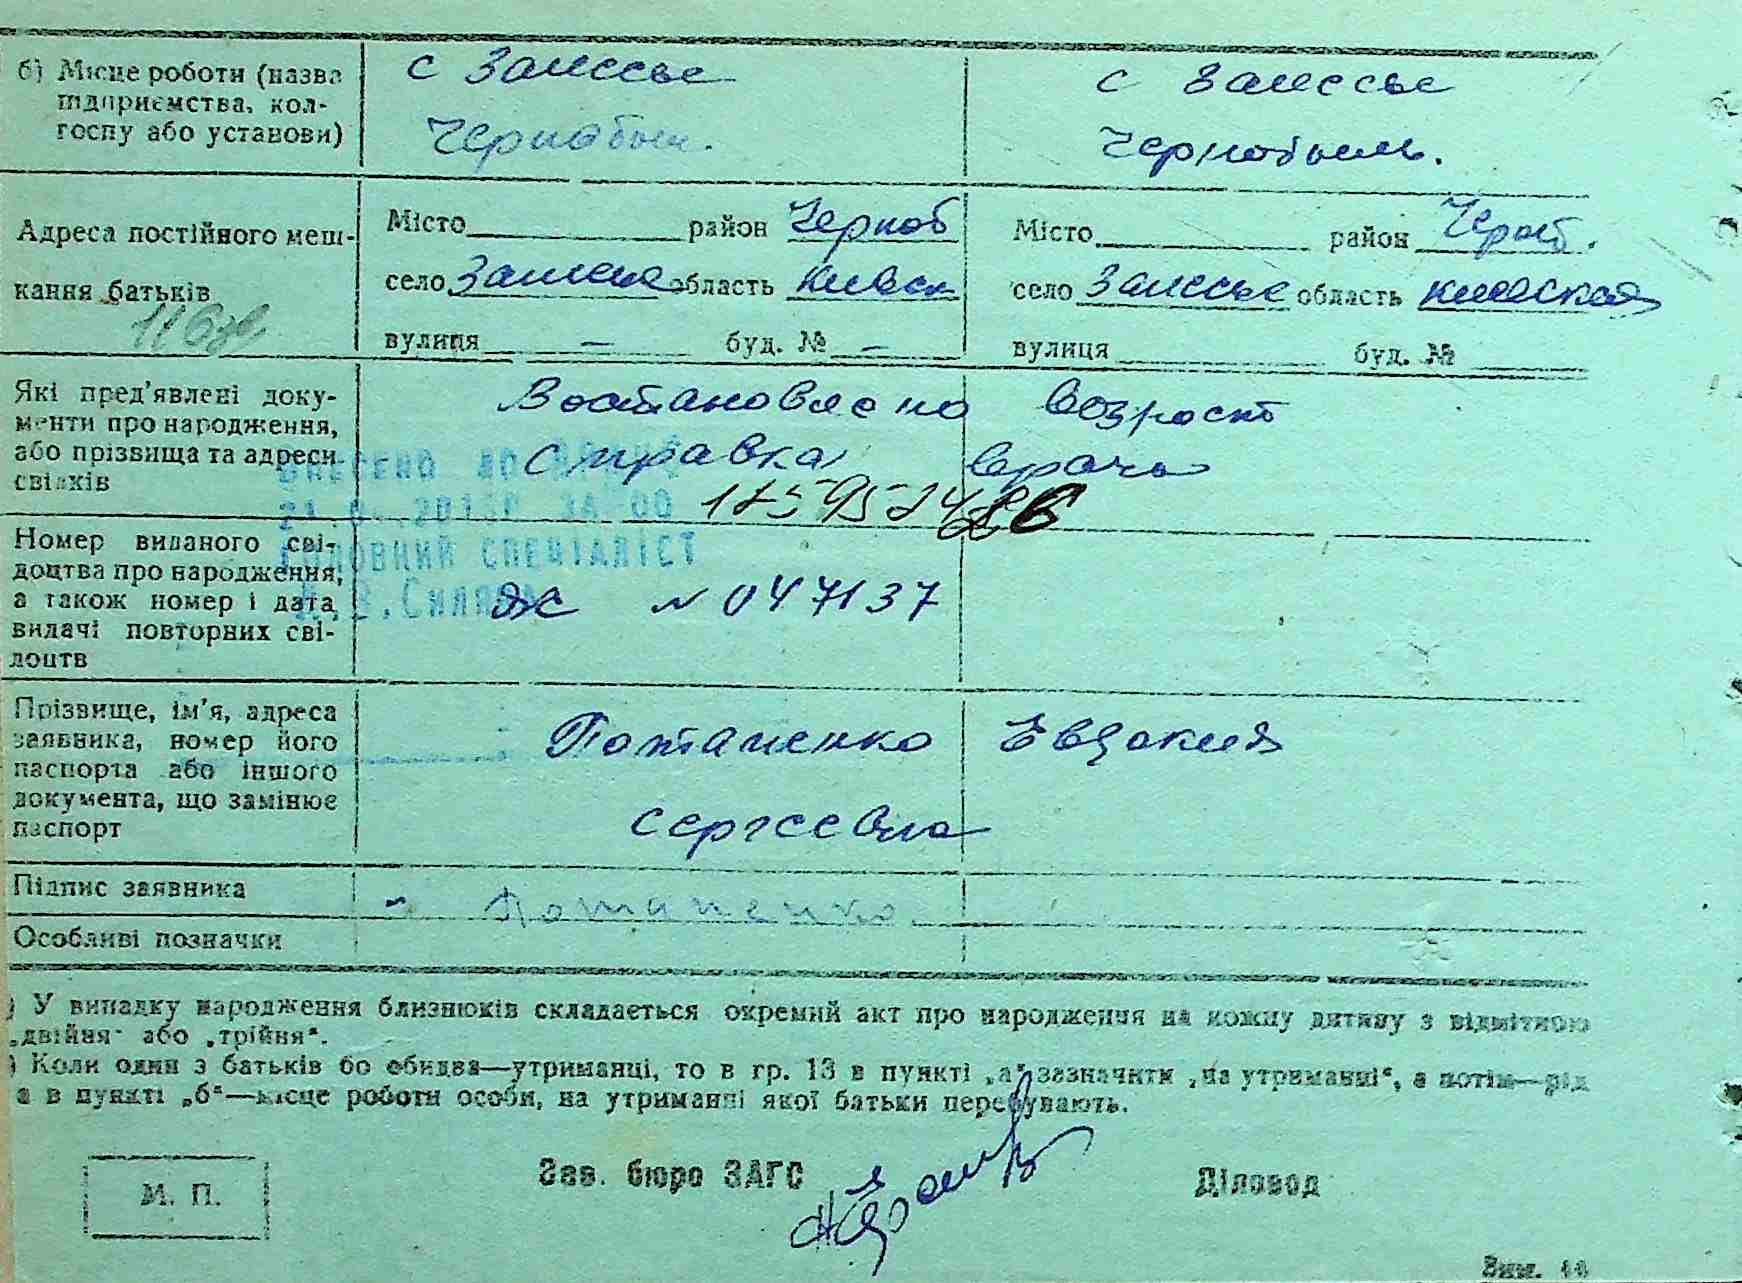 б) Місце роботи (назва
підприємства, кол-
госпу або установи)
с Залесье
Чернобыл.
с Залесье
Чернобыль.
Адреса постійного меш-
кання батьків
Місто район Черноб
село Залесье область Киевск
вулиця — буд. № —
Місто район Черноб.
село Залесье область киевская
вулиця буд. №
Які пред'явлені доку-
менти про народження,
або прізвища та адреси
свідків
Востановлено возраст
справка врача
Номер виданого сві-
доцтва про народження,
а також номер і дата
видачі повторних сві-
доцтв
ГОЛОВНИЙ СПЕЦІАЛІСТ
ЯЖ № 047137
Прізвище, ім'я, адреса
заявника, номер його
паспорта або іншого
документа, що замінює
паспорт
Потапенко Евдокия
Сергеевна
Підпис заявника
Потапенко.
Особливі позначки
) У випадку народження близнюків складається окремий акт про народження на кожну дитину з відміткою
„двійня“ або „трійня“.
) Коли один з батьків бо обидва—утриманці, то в гр. 13 в пункті „а“ зазначити „на утриманні“, а потім—рід
а в пункті „б“—місце роботи особи, на утриманні якої батьки перебувають.
М. П.
Зав. бюро ЗАГС
Діловод